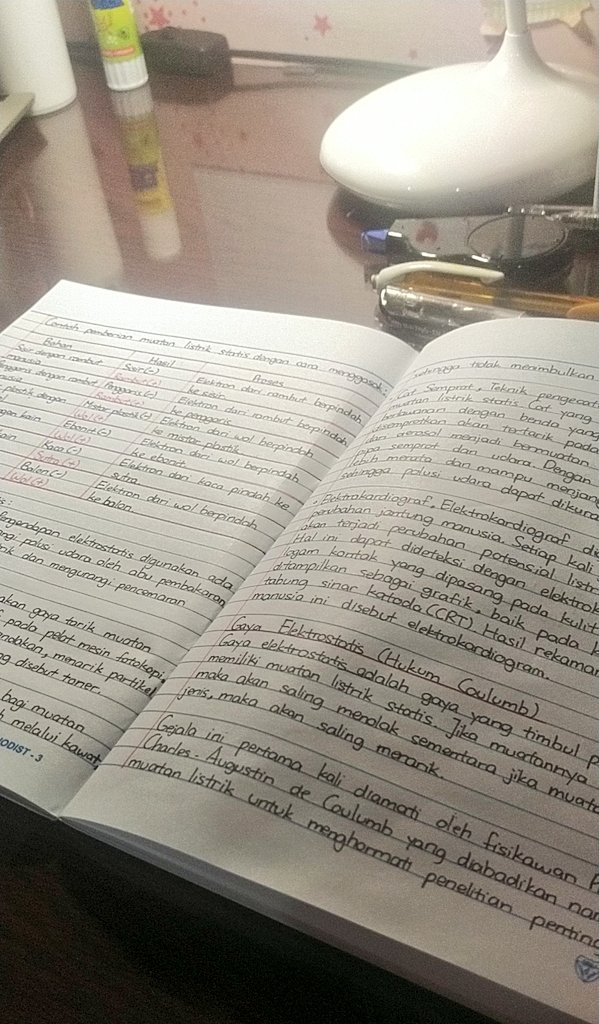 Contoh pemberian muatan listrik statis dengan cara menggosok
Bahan Hasil Proses
Sisir dengan rambut Sisir(-) Elektron dari rambut berpindah
manusia Rambut(+) ke sisir
Penggaris dengan rambut Penggaris(-) Elektron dari rambut berpindah
Rambut(+) ke penggaris
plastik dengan Mistar plastik(-) Elektron dari wol berpindah
Wol(+) ke mistar plastik
kain Ebonit(-) Elektron dari wol berpindah
Wol(+) ke ebonit
kain Kaca(-) Elektron dari kaca pindah ke
Sutra(+) sutra
Balon(-) Elektron dari wol berpindah
Wol(+) ke balon
Pengendapan elektrostatis digunakan
polusi udara oleh abu pembakaran
dan mengurangi pencemaran
gaya tarik muatan
pada pelat mesin fotokopi,
menarik partikel
disebut toner.
bagi muatan
melalui kawat
ODIST - 3
sehingga tidak menimbulkan
Cat Semprot, Teknik pengecatan
muatan listrik statis Cat yang
berlawanan dengan benda yang
disemprotkan akan tertarik pada
dari aerosol menjadi bermuatan
pipa semprot dan udara. Dengan
lebih merata dan mampu
sehingga polusi udara dapat
Elektrokardiograf, Elektrokardiograf
perubahan jantung manusia. Setiap kali
akan terjadi perubahan potensial
Hal ini dapat dideteksi dengan
logam kontak yang dipasang pada kulit
ditampilkan sebagai grafik, baik pada
tabung sinar katoda(CRT). Hasil rekaman
manusia ini disebut elektrokardiogram.
Gaya Elektrostatis (Hukum Coulumb)
Gaya elektrostatis adalah gaya yang timbul
memiliki muatan listrik statis. Jika muatannya
maka akan saling menolak sementara jika
jenis, maka akan saling menarik.
Gejala ini pertama kali diamati oleh fisikawan
Charles-Augustin de Coulumb yang diabadikan
muatan listrik untuk menghormati penelitian